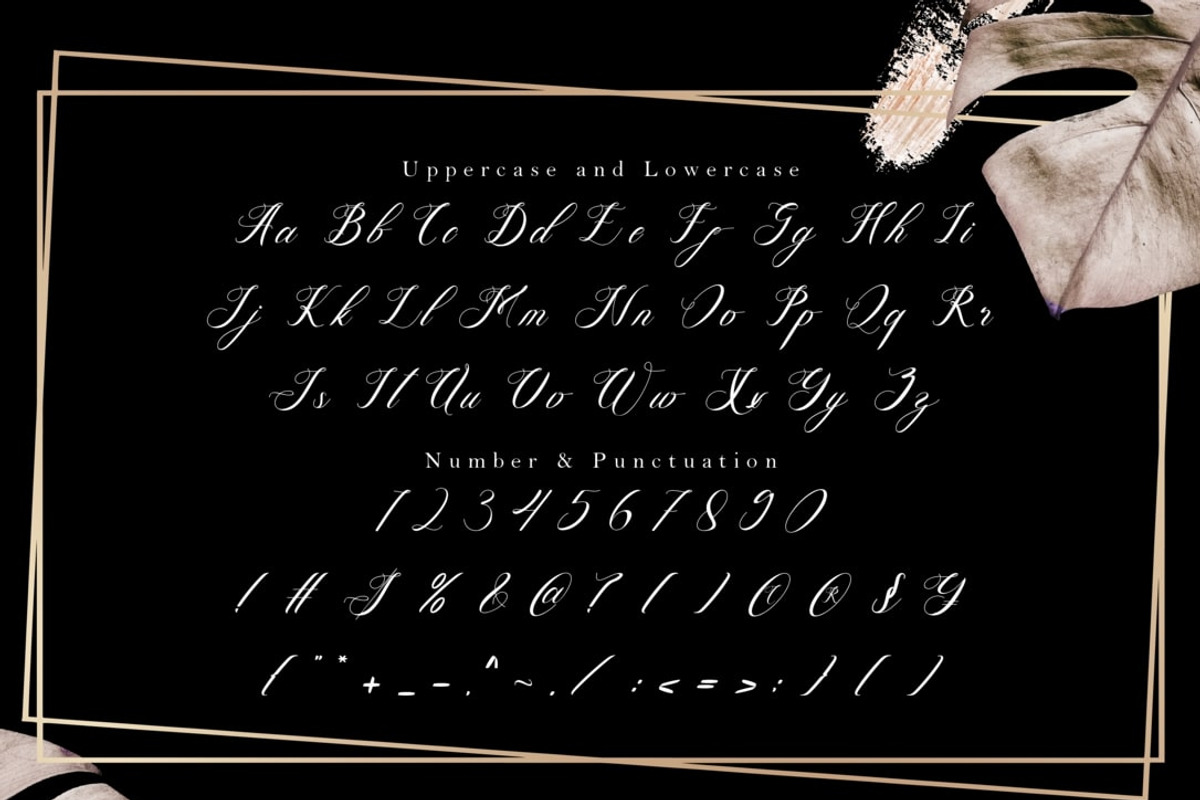 Uppercase and Lowercase
Aa Bb Cc Dd Ee Ff Gg Hh Ii
Jj Kk Ll Mm Nn Oo Pp Qq Rr
Ss Tt Uu Vv Ww Xx Yy Zz
Number & Punctuation
1 2 3 4 5 6 7 8 9 0
! # $ % & @ ? ( ) © ® § ¥
{ " * + _ - . ^ ~ . / : < = > : } ( )